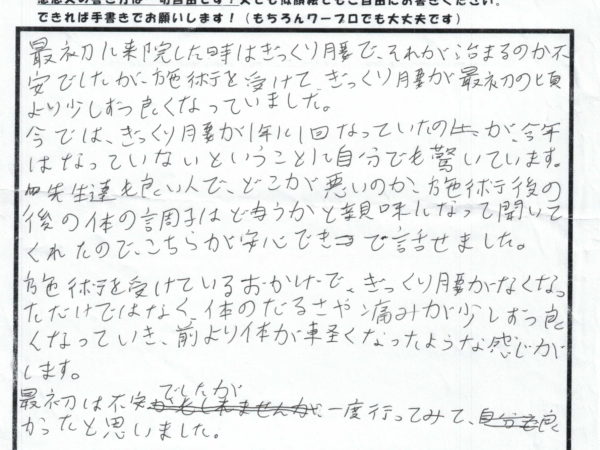 できれば手書きでお願いします！（もちろんワープロでも大丈夫です）
最初に来院した時はぎっくり腰で、それが治まるのか不
安でしたが、施術を受けて、ぎっくり腰が最初の頃
より少しずつ良くなっていました。
今では、ぎっくり腰が1年に1回なっていたの が、今年
はなっていないということに自分でも驚いています。
先生達も良い人で、どこが悪いのか、施術後の
後の体の調子はどうかと親味になって聞いて
くれたので、こちらが安心でき で話せました。
施術を受けているおかげで、ぎっくり腰がなくなっ
ただけではなく、体のだるさや痛みが少しずつ良
くなっていき、前より体が軽くなったような感じが
します。
最初は不安でしたが、一度行ってみて、良
かったと思いました。